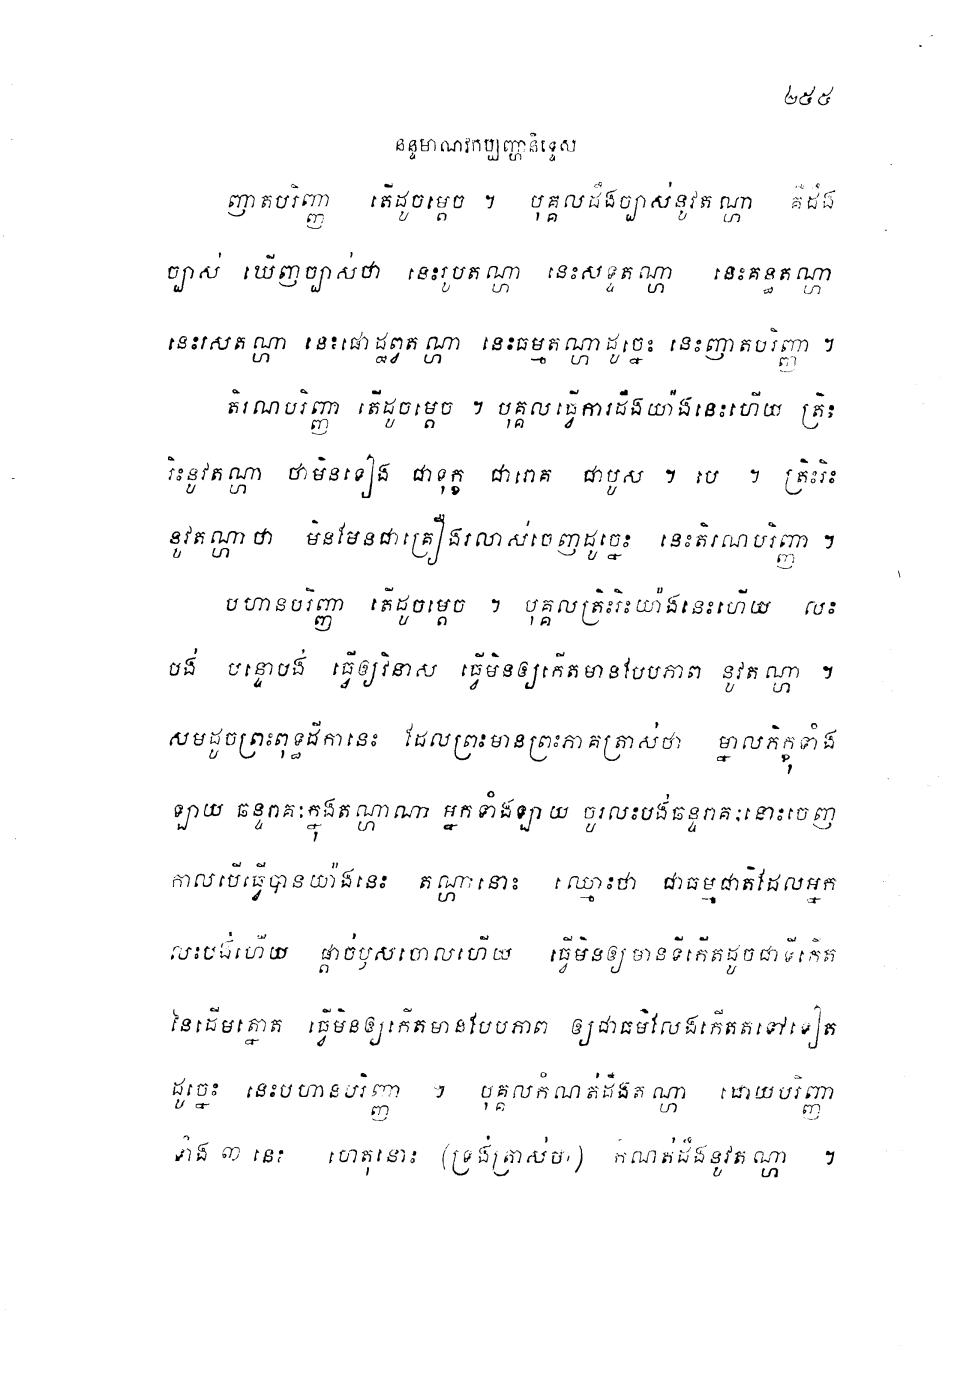 ២៥៥
នន្ទមាណវកប្បញ្ហានិទ្ទេស
ញាតបរិញ្ញា តើដូចម្ដេច ។ បុគ្គលដឹងច្បាស់នូវតណ្ហា គឺដឹង
ច្បាស់ ឃើញច្បាស់ថា នេះរូបតណ្ហា នេះសទ្ទតណ្ហា នេះគន្ធតណ្ហា
នេះរសតណ្ហា នេះផោដ្ឋព្វតណ្ហា នេះធម្មតណ្ហាដូច្នេះ នេះញាតបរិញ្ញា ។
តិរណបរិញ្ញា តើដូចម្ដេច ។ បុគ្គលធ្វើការដឹងយ៉ាងនេះហើយ ត្រិះ
រិះនូវតណ្ហា ថាមិនទៀង ជាទុក្ខ ជារោគ ជាបូស ។ បេ ។ ត្រិះរិះ
នូវតណ្ហាថា មិនមែនជាគ្រឿងរលាស់ចេញដូច្នេះ នេះតិរណបរិញ្ញា ។
បហានបរិញ្ញា តើដូចម្ដេច ។ បុគ្គលត្រិះរិះយ៉ាងនេះហើយ លះ
បង់ បន្ទោបង់ ធ្វើឲ្យវិនាស ធ្វើមិនឲ្យកើតមានបែបភាព នូវតណ្ហា ។
សមដូចព្រះពុទ្ធដីកានេះ ដែលព្រះមានព្រះភាគត្រាស់ថា ម្នាលភិក្ខុទាំង
ឡាយ ឆន្ទរាគៈក្នុងតណ្ហាណា អ្នកទាំងឡាយ ចូរលះបង់ឆន្ទរាគៈនោះចេញ
កាលបើធ្វើបានយ៉ាងនេះ តណ្ហានោះ ឈ្មោះថា ជាធម្មជាតិដែលអ្នក
លះបង់ហើយ ផ្ដាច់ឫសចោលហើយ ធ្វើមិនឲ្យមានទីកើតដូចជាទីកើត
នៃដើមត្នោត ធ្វើមិនឲ្យកើតមានបែបភាព ឲ្យជាធម៌លែងកើតតទៅទៀត
ដូច្នេះ នេះបហានបរិញ្ញា ។ បុគ្គលកំណត់ដឹងតណ្ហា ដោយបរិញ្ញា
ទាំង ៣ នេះ ហេតុនោះ (ទ្រង់ត្រាស់ថា) កំណត់ដឹងនូវតណ្ហា ។